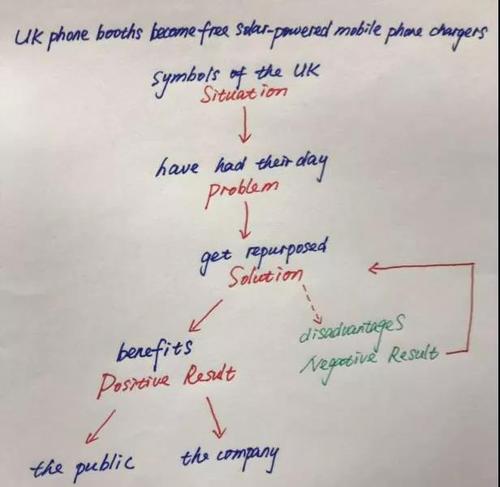 UK phone booths become free solar-powered mobile phone chargers
symbols of the UK
Situation
have had their day
Problem
get repurposed
Solution
disadvantages
Negative Result
benefits
Positive Result
the public
the company